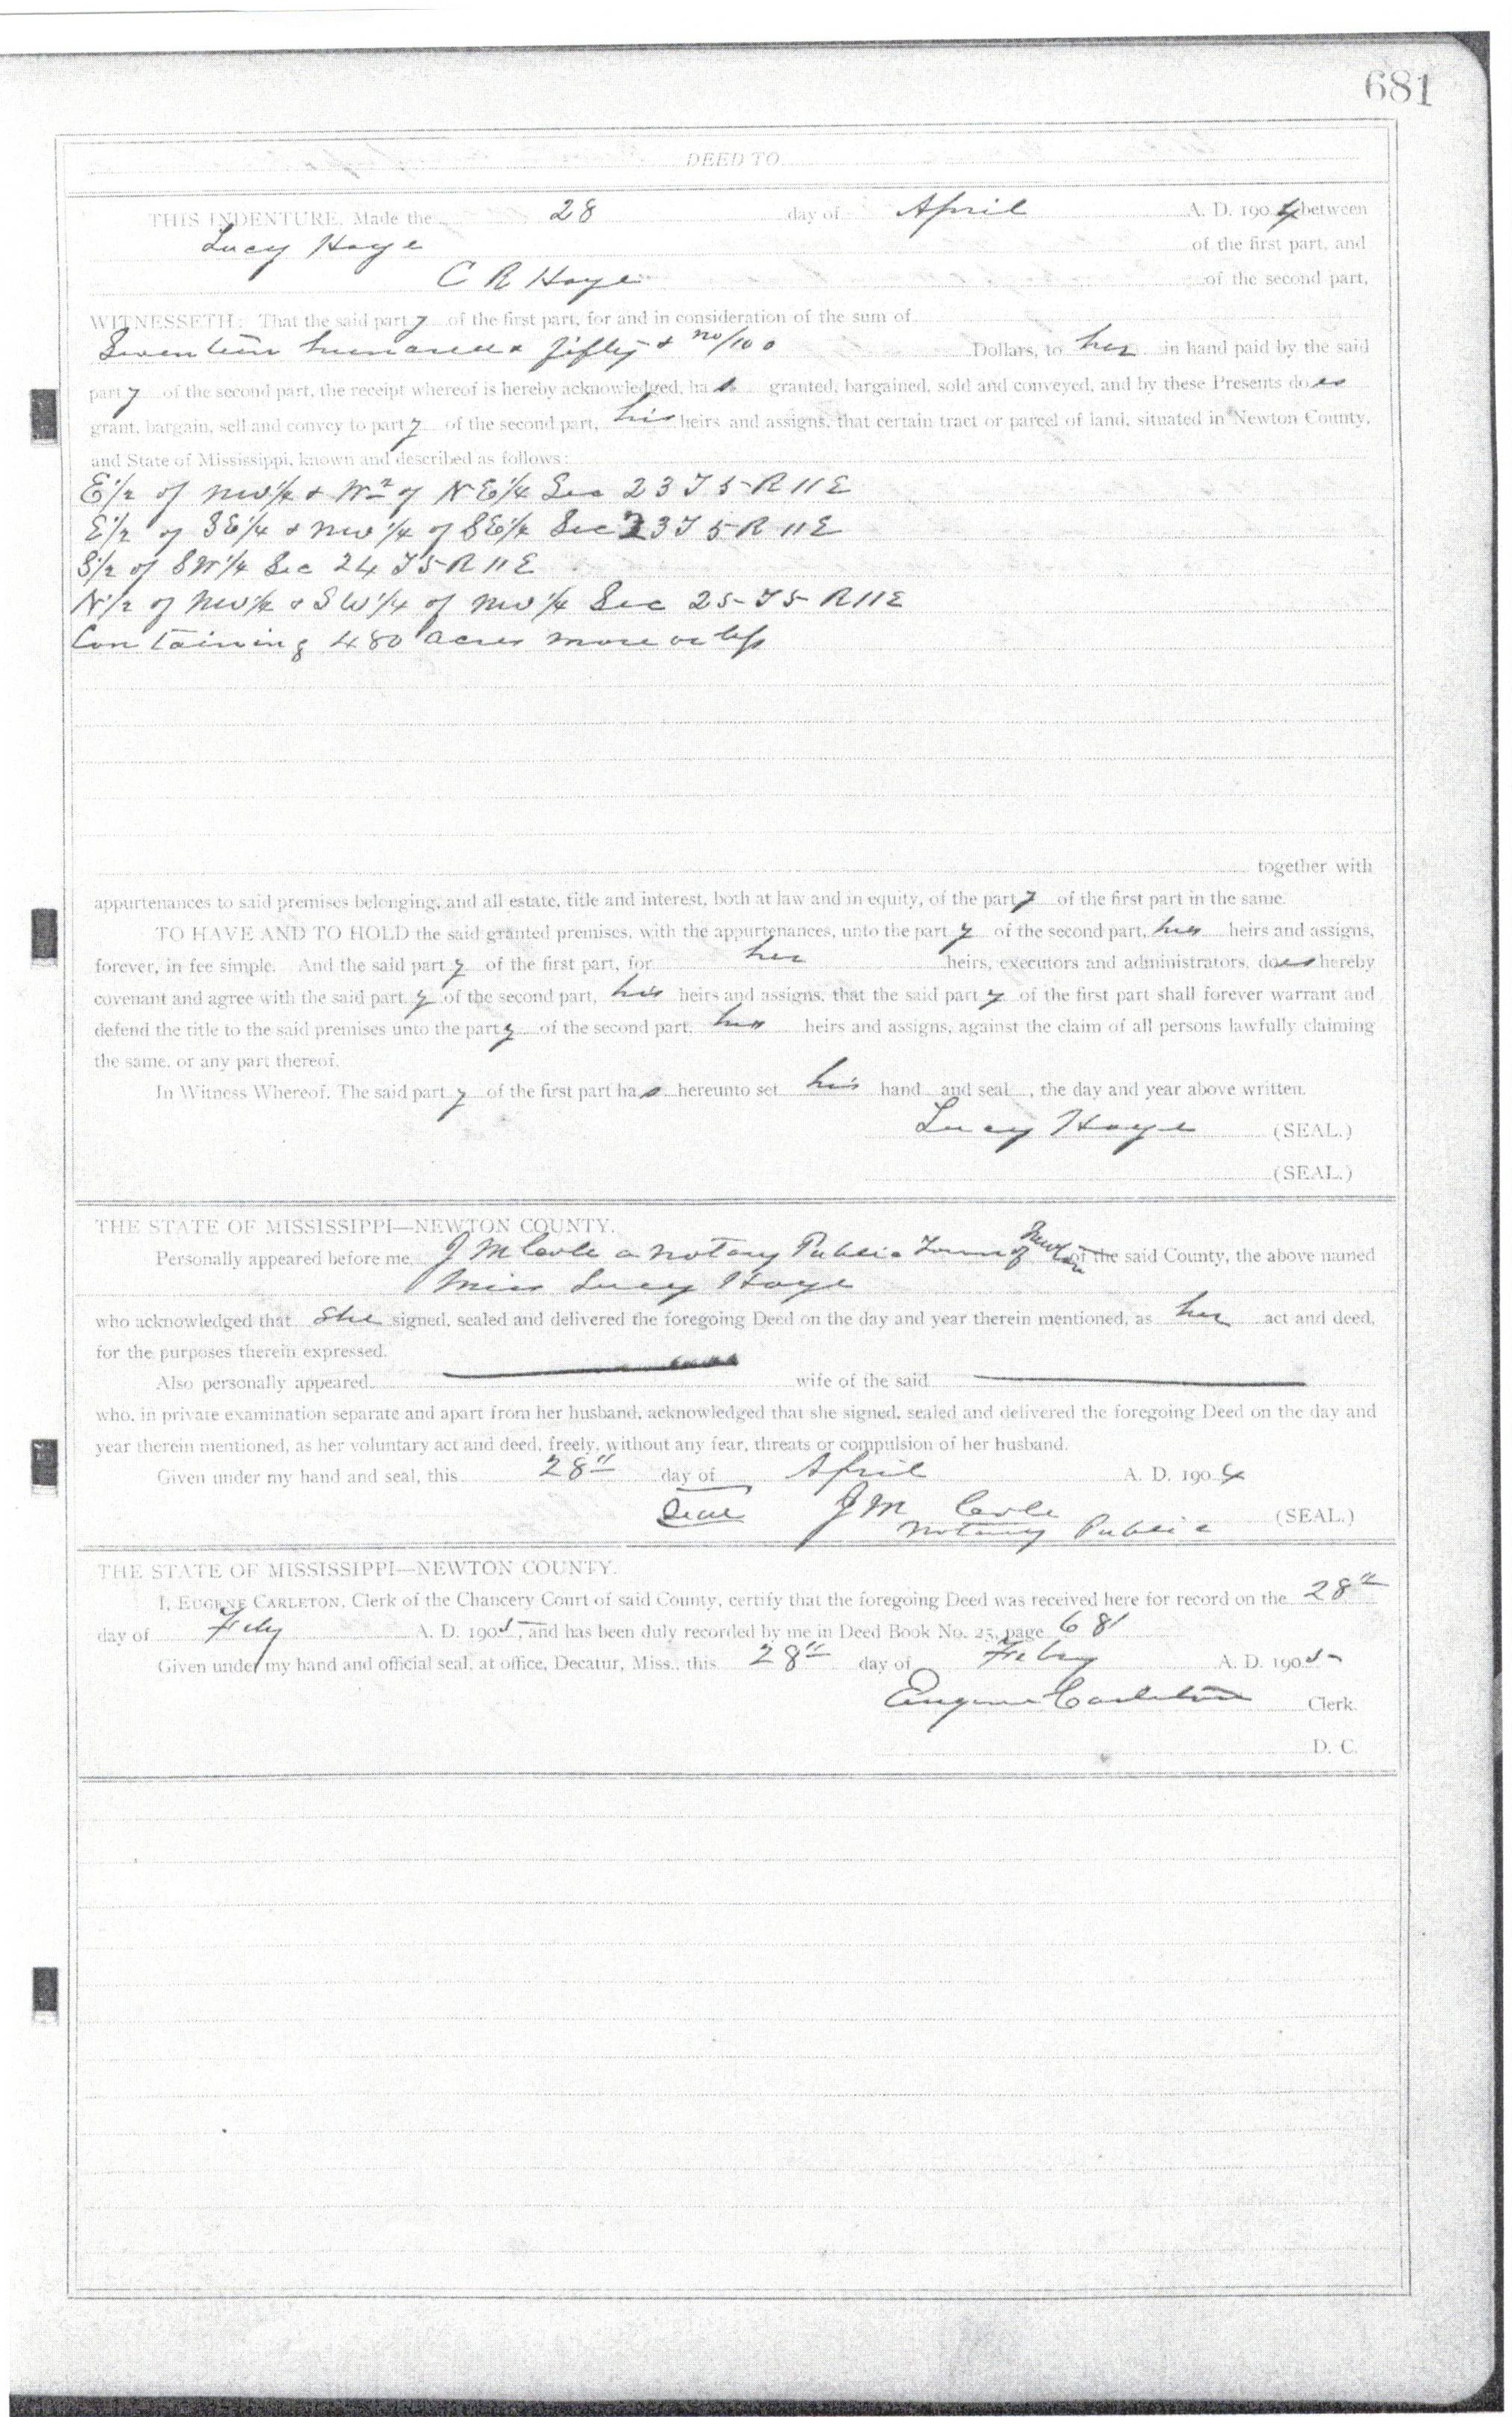 681
DEED TO
THIS INDENTURE, Made the 28 day of April A. D. 1904 between
Lucy Hoye of the first part, and
C R Hoye of the second part,
WITNESSETH: That the said party of the first part, for and in consideration of the sum of
Seventeen hundred & fifty & no/100 Dollars, to her in hand paid by the said
party of the second part, the receipt whereof is hereby acknowledged, has granted, bargained, sold and conveyed, and by these Presents does
grant, bargain, sell and convey to party of the second part, his heirs and assigns, that certain tract or parcel of land, situated in Newton County,
and State of Mississippi, known and described as follows:
E1/2 of NW1/4 & W2 of NE1/4 Sec 23 T5-R11E
E1/2 of SE1/4 & NW1/4 of SE1/4 Sec 23 T5 R11E
S1/2 of SW1/4 Sec 24 T5-R11E
N1/2 of NW1/4 & SW1/4 of NW1/4 Sec 25-T5-R11E
Containing 480 acres more or less
together with
appurtenances to said premises belonging, and all estate, title and interest, both at law and in equity, of the party of the first part in the same.
TO HAVE AND TO HOLD the said granted premises, with the appurtenances, unto the party of the second part, his heirs and assigns,
forever, in fee simple. And the said party of the first part, for her heirs, executors and administrators, does hereby
covenant and agree with the said party of the second part, his heirs and assigns, that the said party of the first part shall forever warrant and
defend the title to the said premises unto the party of the second part, his heirs and assigns, against the claim of all persons lawfully claiming
the same, or any part thereof.
In Witness Whereof, The said party of the first part has hereunto set his hand and seal, the day and year above written.
Lucy Hoye (SEAL.)
(SEAL.)
THE STATE OF MISSISSIPPI—NEWTON COUNTY.
Personally appeared before me, J M a Notary Public Town of Newton of the said County, the above named
Miss Lucy Hoye
who acknowledged that she signed, sealed and delivered the foregoing Deed on the day and year therein mentioned, as her act and deed,
for the purposes therein expressed.
Also personally appeared wife of the said
who, in private examination separate and apart from her husband, acknowledged that she signed, sealed and delivered the foregoing Deed on the day and
year therein mentioned, as her voluntary act and deed, freely, without any fear, threats or compulsion of her husband.
Given under my hand and seal, this 28" day of April A. D. 1904
Seal J M (SEAL.)
Notary Public
THE STATE OF MISSISSIPPI—NEWTON COUNTY.
I, EUGENE CARLETON, Clerk of the Chancery Court of said County, certify that the foregoing Deed was received here for record on the 28"
day of Feby A. D. 1905, and has been duly recorded by me in Deed Book No. 25, page 681
Given under my hand and official seal, at office, Decatur, Miss., this 28" day of Febry A. D. 1905
Eugene Carleton Clerk.
D. C.